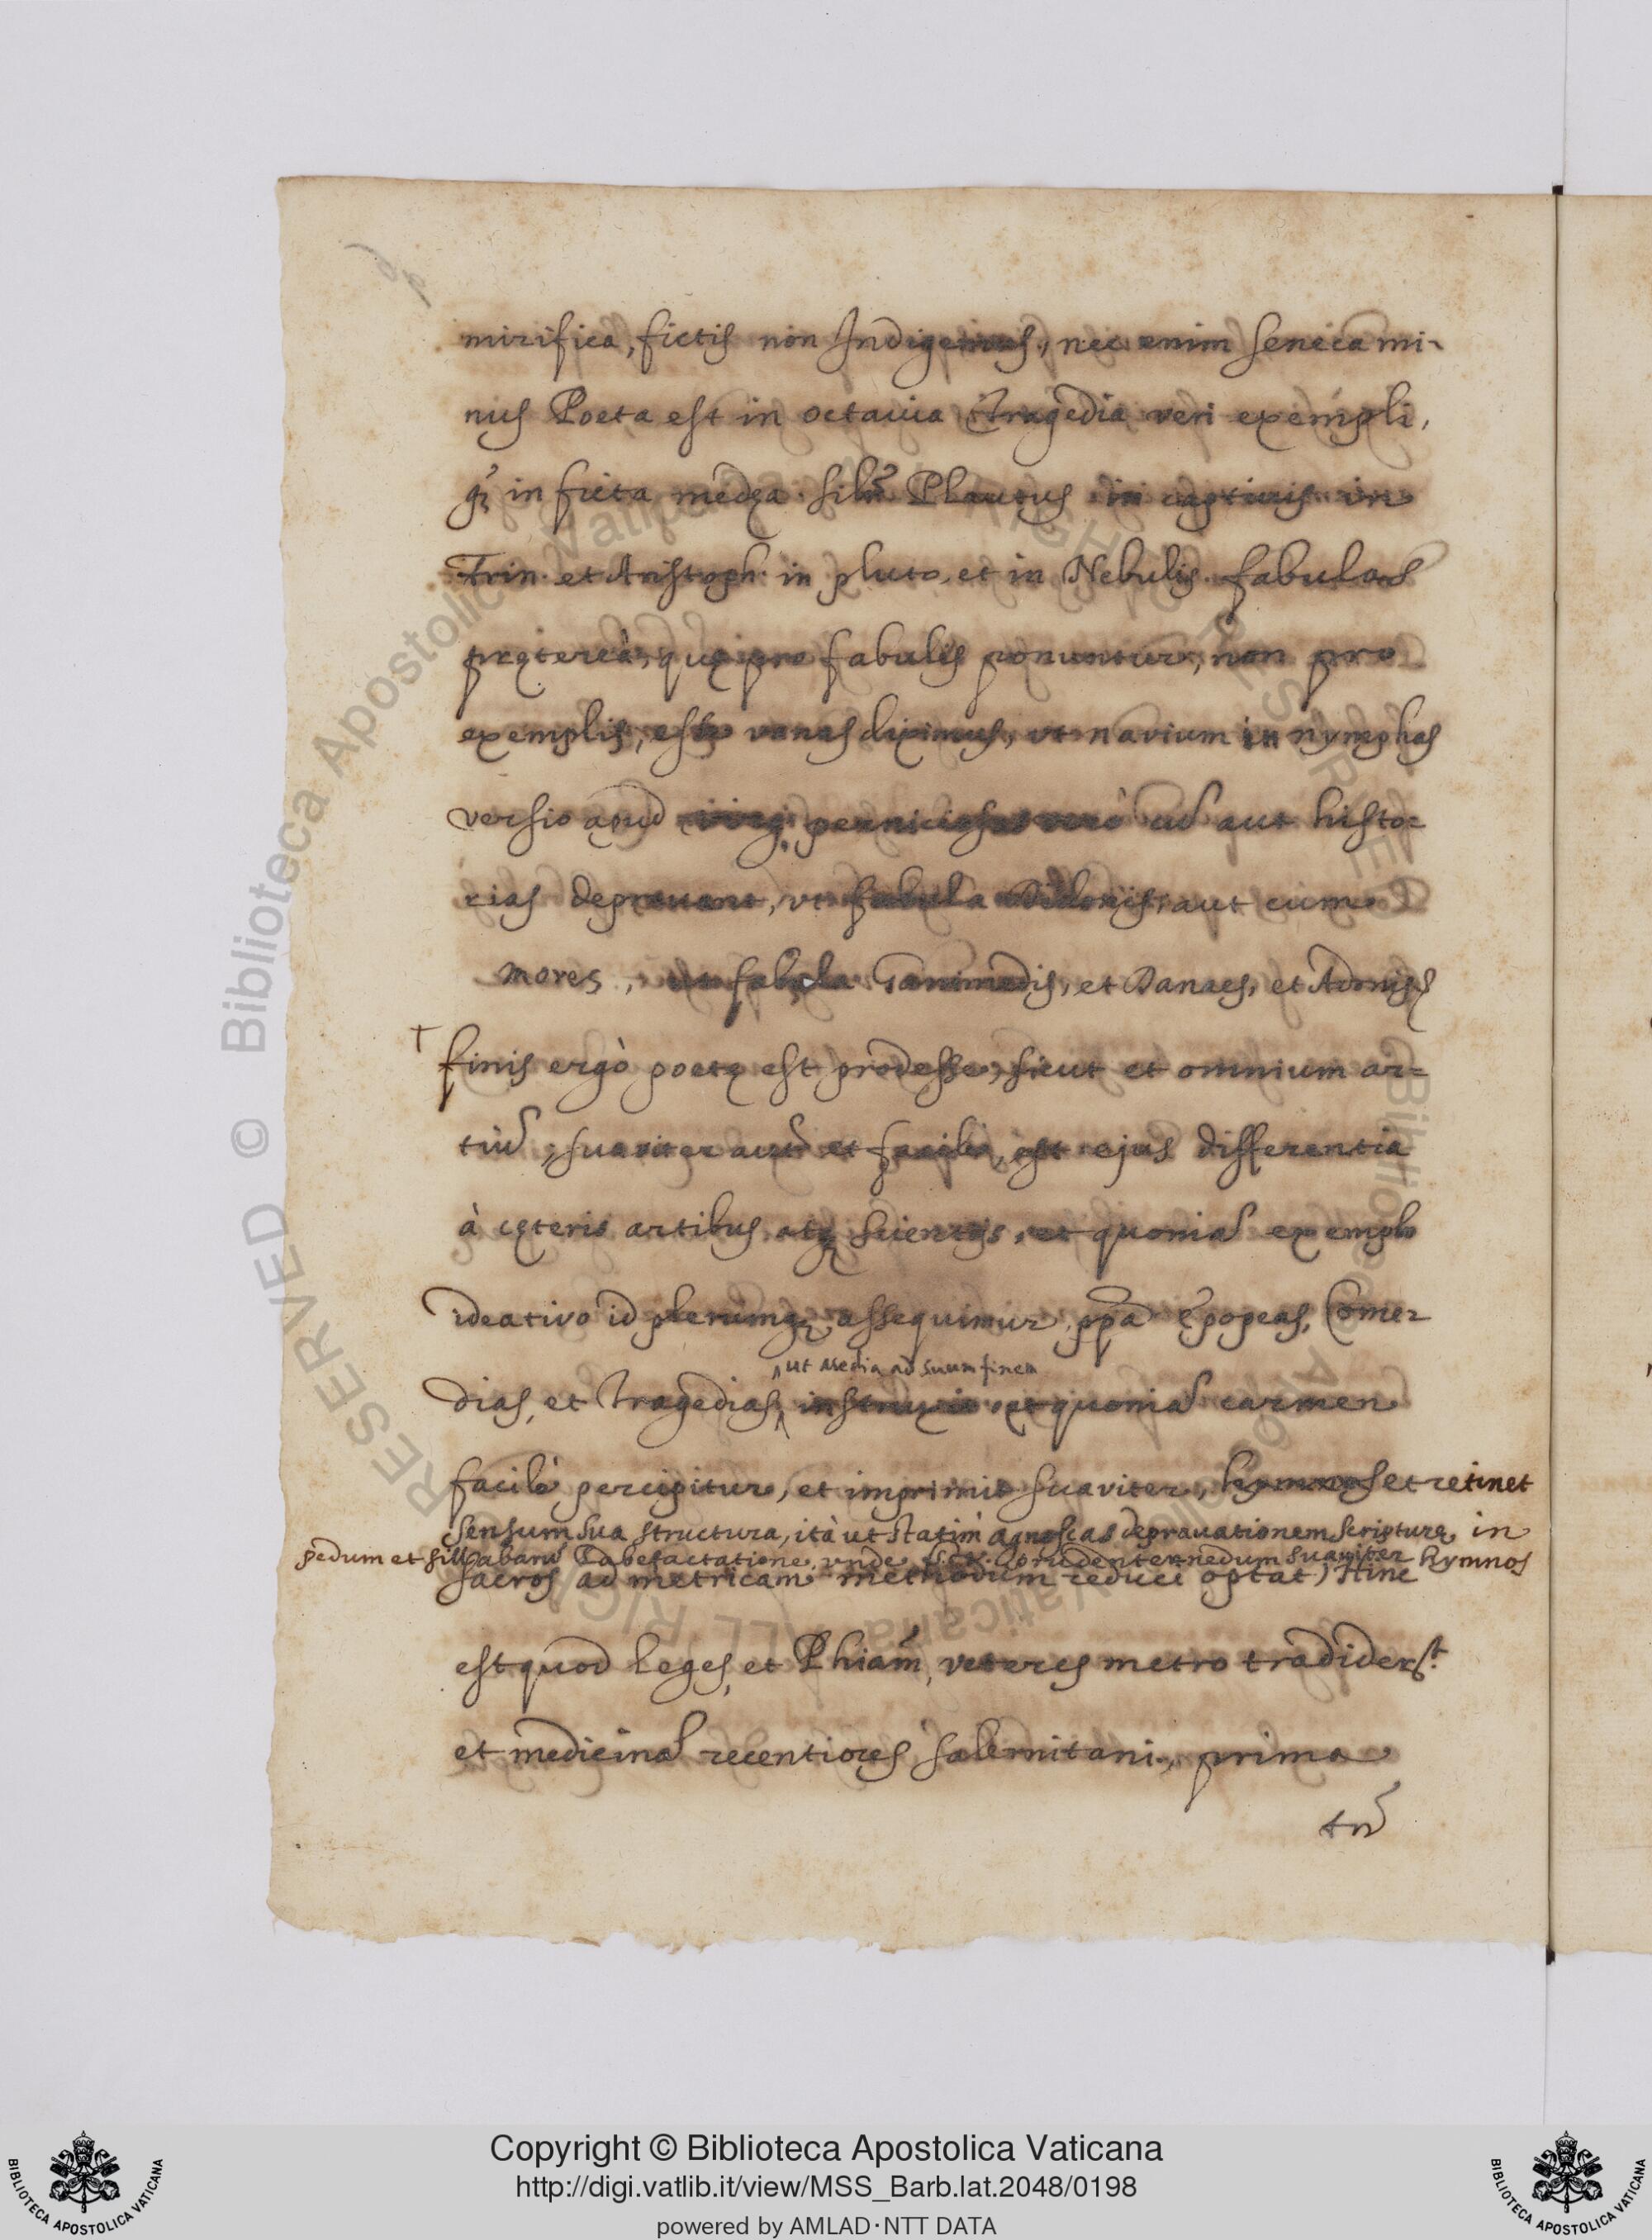 mirifica, fictis non Indigemus, nec enim Seneca mi-
nus Poeta est in octavia Tragedia veri exempli,
q̃ in ficta medea. Silr̃ Plautus in captivis in
Trin. et Aristoph. in pluto, et in Nebulis. fabulas
pręterea, quę pro fabulis ponuntur, non pro
exemplis, esse vanas diximus, ut navium in nymphas
versio apud virg. perniciosas verò cũ aut histo=
rias depravant, ut fabula Didonis, aut cum
mores, ut fabula Ganimedis, et Danaes, et Adonis
† finis ergò poetę est prodesse, sicut et omnium ar=
tiũ, suaviter autẽ et facilè, est ejus differentia
à cęteris artibus atq; scientijs, et quoniã exemplo
ideativo id plerumq; assequimur, ppã Epopeas, Come=
ut Media ad suum finem
dias, et Tragedias, instruxit et quoniã carmen
facilè percipitur, et imprimit suaviter, hymnos et retinet
sensum sua structura, ità ut statim agnoscas depravationem scripturę, in
pedum et sillabarũ labefactatione, vnde prudenter nedum suaviter hymnos
sacros ad metricam methodum reduci optat) Hinc
est quod leges, et Phiam̃, veteres metro tradider̃t
et medicinã recentiores salernitani, prima
tñ
Copyright © Biblioteca Apostolica Vaticana
http://digi.vatlib.it/view/MSS_Barb.lat.2048/0198
powered by AMLAD·NTT DATA
BIBLIOTECA APOSTOLICA VATICANA
BIBLIOTECA APOSTOLICA VATICANA